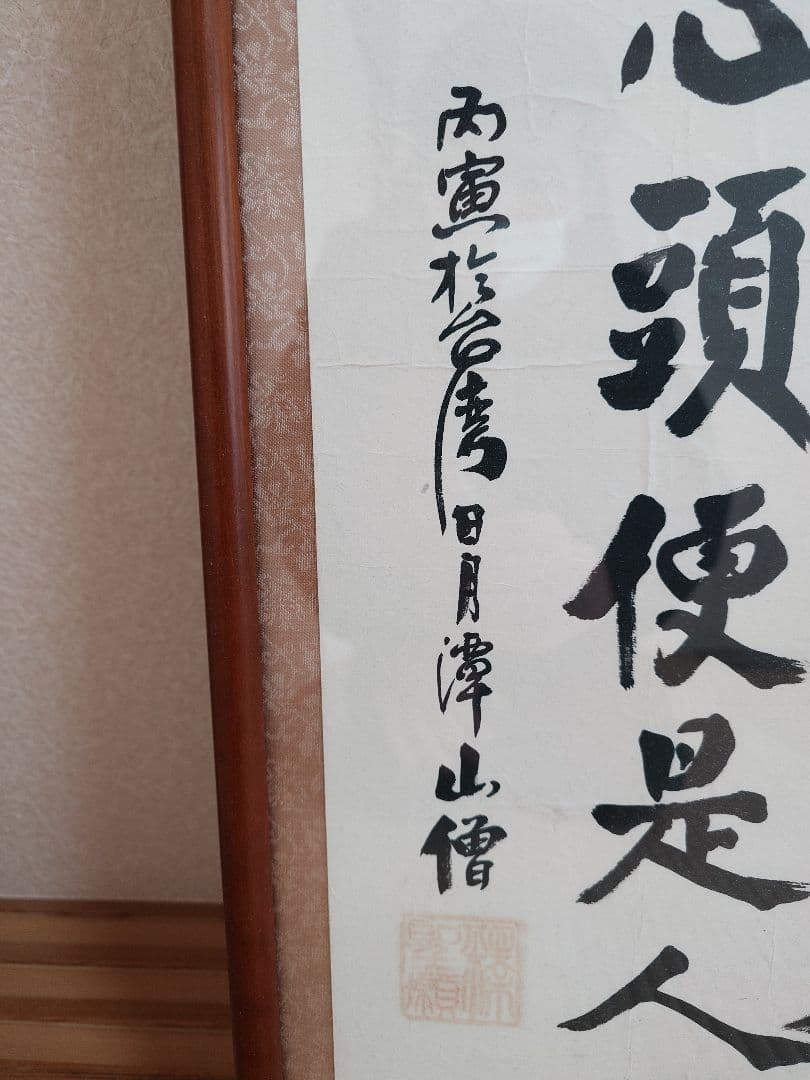 心頭便是人
丙寅於台湾日月潭山僧